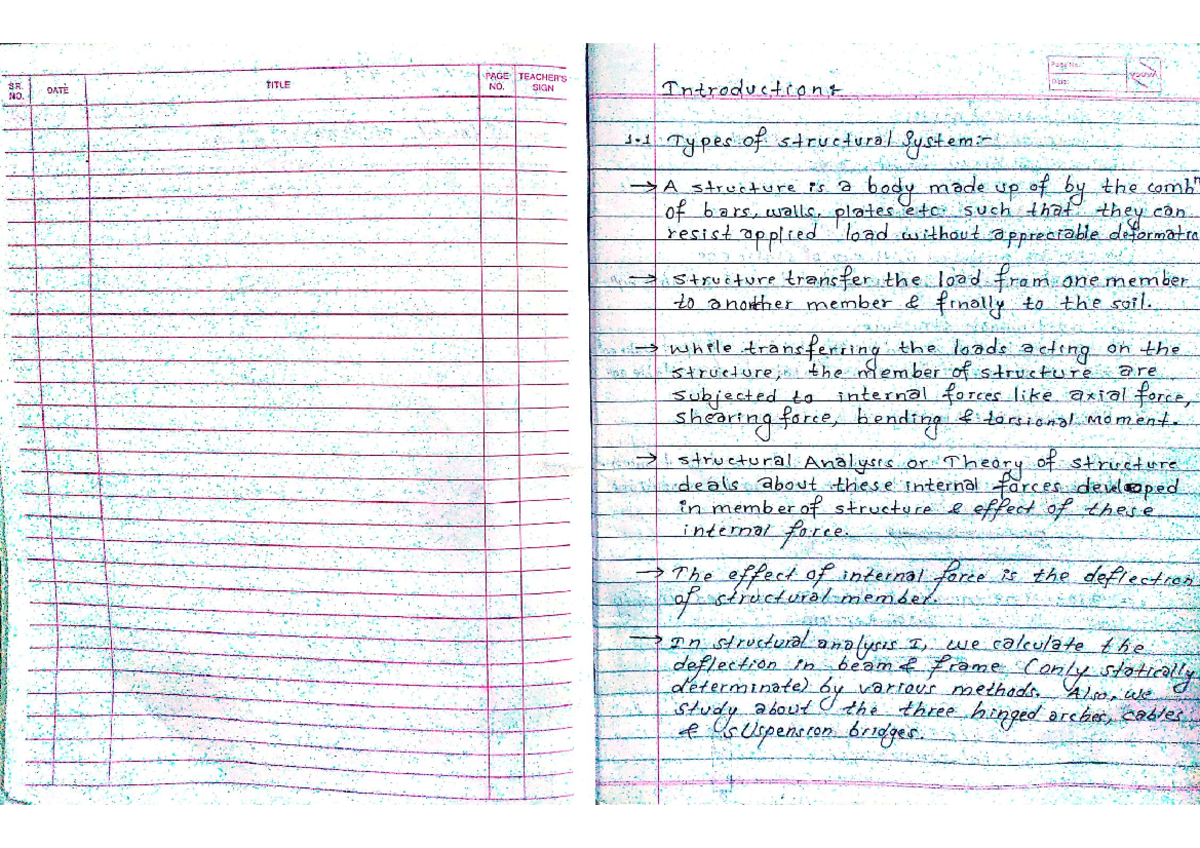 SR. NO.
DATE
TITLE
PAGE NO.
TEACHER'S SIGN
Page No.
Date
Introduction:
1.1 Types of structural System:-
→ A structure is a body made up of by the combn
of bars, walls, plates etc. such that they can
resist applied load without appreciable deformatio
→ structure transfer the load from one member
to another member & finally to the soil.
→ while transferring the loads acting on the
structure, the member of structure are
subjected to internal forces like axial force,
shearing force, bending & torsional moment.
→ structural Analysis or Theory of structure
deals about these internal forces developed
in member of structure & effect of these
internal force.
→ The effect of internal force is the deflection
of structural member.
→ In structural analysis I, we calculate the
deflection in beam & frame (only statically
determinate) by various methods. Also, we
study about the three hinged arches, cables
& sUspension bridges.